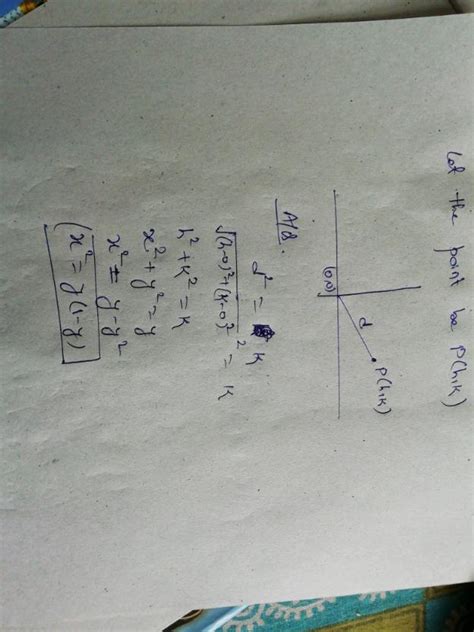 Let the point be P(h,k)
P(h,k)
d
(0,0)
A/Q.
d² = k
√(h-0)²+(k-0)² ² = k
h² + k² = k
x² + y² = y
x² = y - y²
(x² = y(1-y)